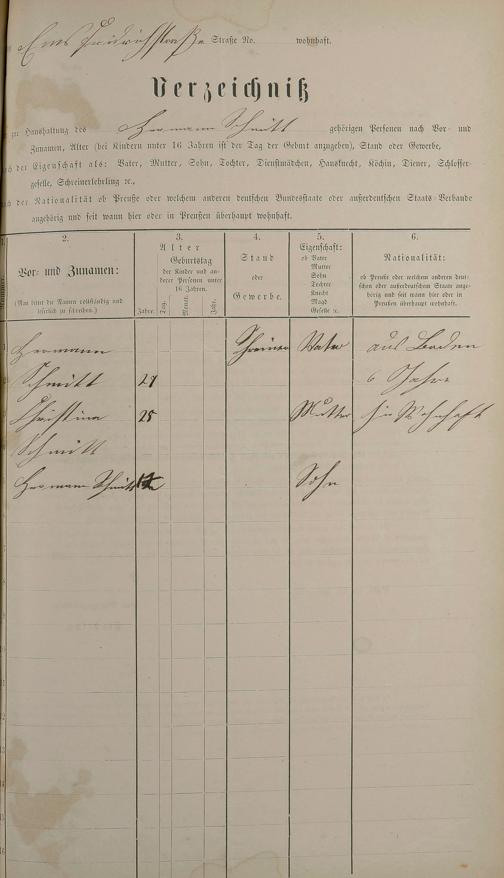 Ems Friedrichstraße Straße No. wohnhaft.
Verzeichniß
zur Haushaltung des Hermann Schmitt gehörigen Personen nach Vor- und
Zunamen, Alter (bei Kindern unter 16 Jahren ist der Tag der Geburt angegeben), Stand oder Gewerbe,
nach der Eigenschaft als: Vater, Mutter, Sohn, Tochter, Dienstmädchen, Hausknecht, Köchin, Diener, Schlosser-
geselle, Schreinerlehrling ꝛc.,
nach der Nationalität ob Preuße oder welchem anderen deutschen Bundesstaate oder außerdeutschen Staats-Verbande
angehörig und seit wann hier oder in Preußen überhaupt wohnhaft.
2. 3. 4. 5. 6.
Vor- und Zunamen:
(Man bittet die Namen vollständig und
leserlich zu schreiben.)
Alter
Geburtstag
der Kinder und an-
derer Personen unter
16 Jahren.
Jahre. Tag. Monat. Jahr.
Stand
oder
Gewerbe.
Eigenschaft:
ob Vater
Mutter
Sohn
Tochter
Knecht
Magd
Geselle ꝛc.
Nationalität:
ob Preuße oder welchem anderen deut-
schen oder außerdeutschen Staate ange-
hörig und seit wann hier oder in
Preußen überhaupt wohnhaft.
Hermann Schreiner Vater aus Baden
Schmitt 27 6 Jahre
Christina 25 Mutter hir Wohnhaft
Schmitt
Hermann Schmitt Sohn